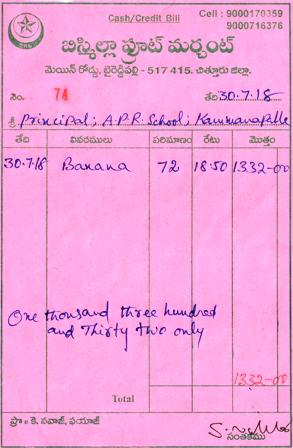 Cash/Credit Bill
Cell : 9000170359
9000716376
బిస్మిల్లా ఫ్రూట్ మర్చంట్
మెయిన్ రోడ్డు, బైరెడ్డిపల్లి - 517 415. చిత్తూరు జిల్లా.
నెం. 74 తేది 30.7.18
శ్రీ Principal; A.P.R. School; Kammanapalle
తేది వివరములు పరిమాణం రేటు మొత్తం
30.7.18 Banana 72 18.50 1332-00
One thousand three hundred
and Thirty two only
1332-00
Total
ప్రొ॥ కె. నవాజ్, ఫయాజ్
సంతకము